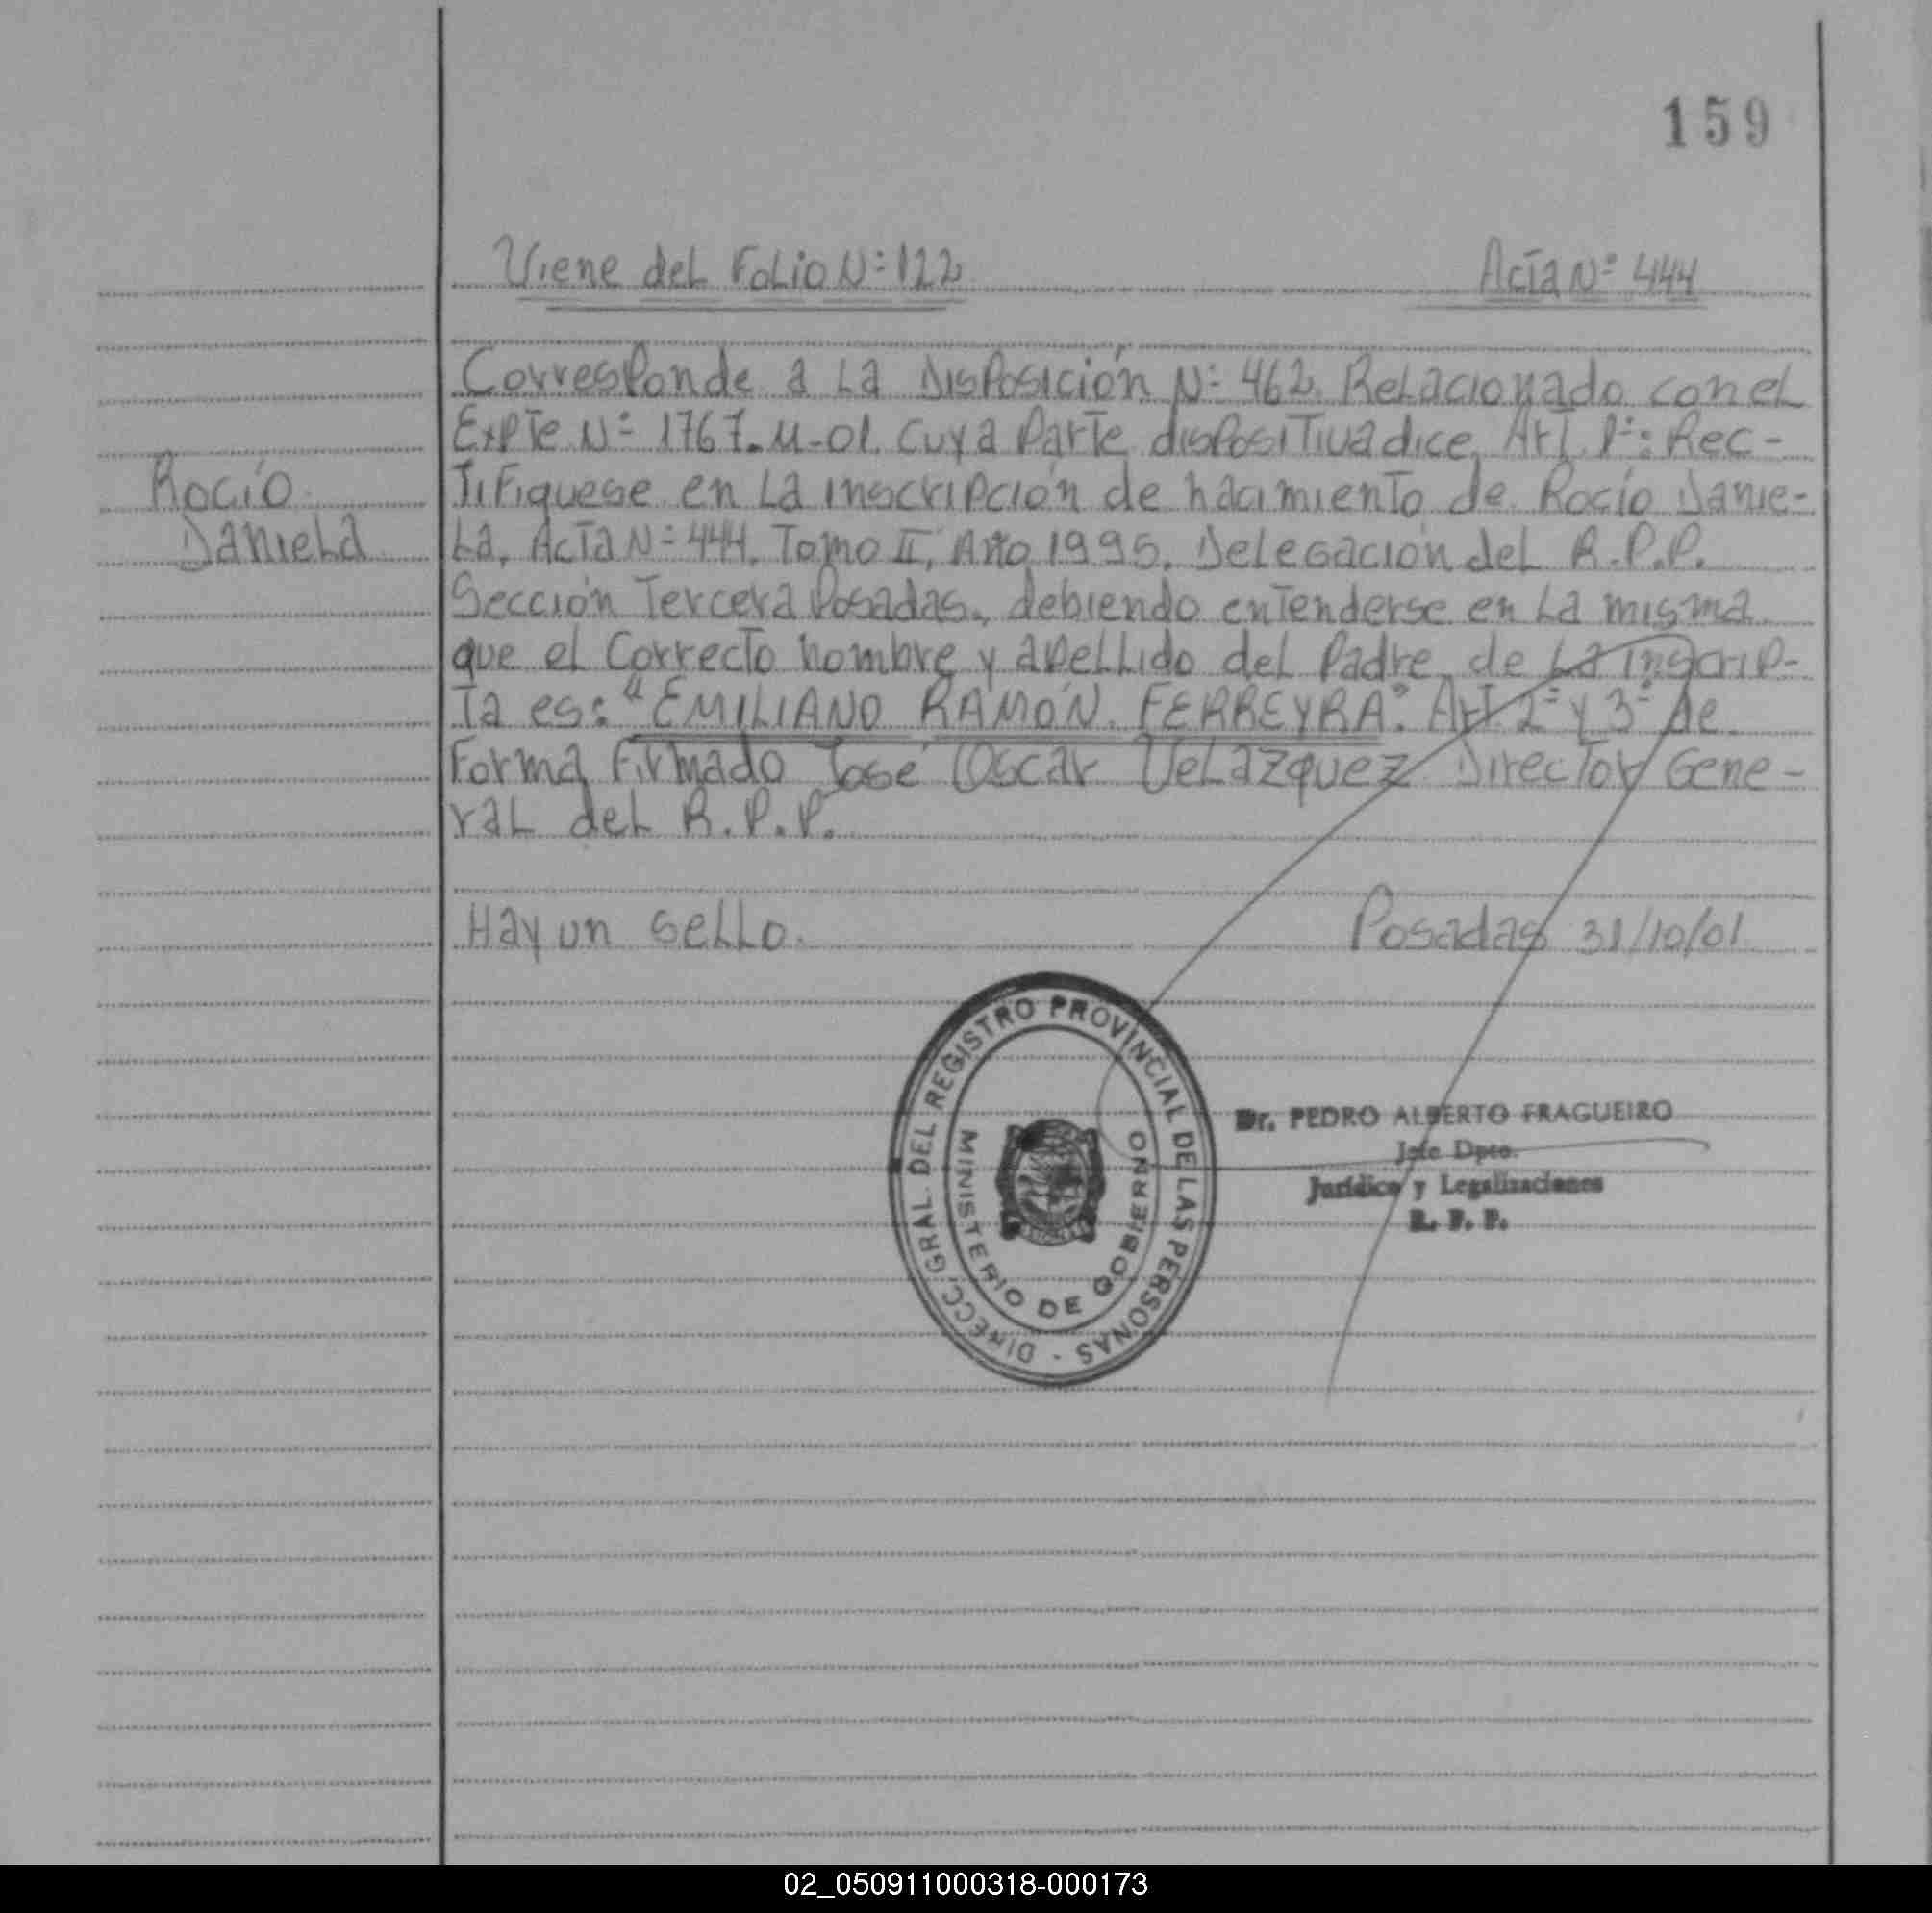 159
Viene del Folio N: 122
Acta N: 444
Corresponde a La Disposición N: 462. Relacionado con el
Expte N: 1767-M-01. Cuya Parte dispositiva dice, Art. 1º: Rec-
Rocío
tifiquese en La inscripción de nacimiento de Rocío Danie-
Daniela
La, Acta N: 444. Tomo II, Año 1995. Delegación del R.P.P.
Sección Tercera Posadas, debiendo entenderse en La misma
que el Correcto nombre y apellido del Padre de La inscrip-
ta es: "EMILIANO RAMÓN FERREYRA". Art 2º y 3º de
Forma Firmado José Oscar Velazquez Director Gene-
ral del R.P.P.
Hay un sello.
Posadas 31/10/01
DIRECC. GRAL. DEL REGISTRO PROVINCIAL DE LAS PERSONAS -
MINISTERIO DE GOBIERNO
Dr. PEDRO ALBERTO FRAGUEIRO
Jefe Dpto.
Jurídico y Legalizaciones
R. P. P.
02_050911000318-000173